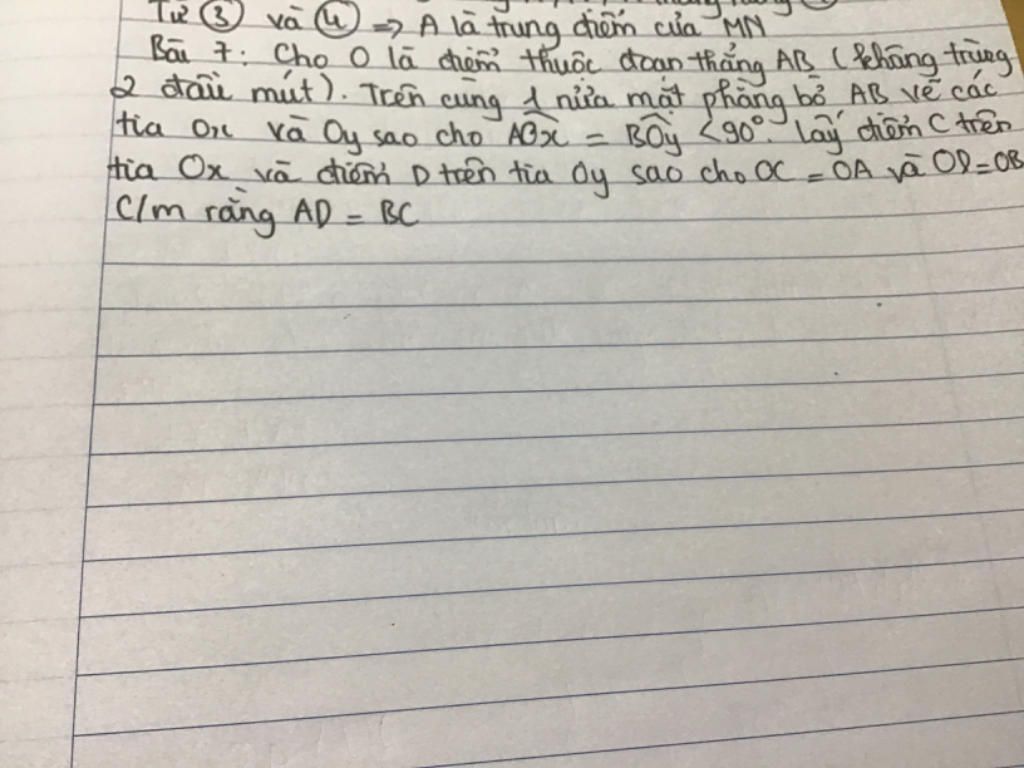 Từ ③ và ④ => A là trung điểm của MN
Bài 7: Cho O là điểm thuộc đoạn thẳng AB (không trùng
2 đầu mút). Trên cùng 1 nửa mặt phẳng bờ AB vẽ các
tia Ox và Oy sao cho AÔx = BÔy < 90°. Lấy điểm C trên
tia Ox và điểm D trên tia Oy sao cho OC = OA và OD = OB
C/m rằng AD = BC